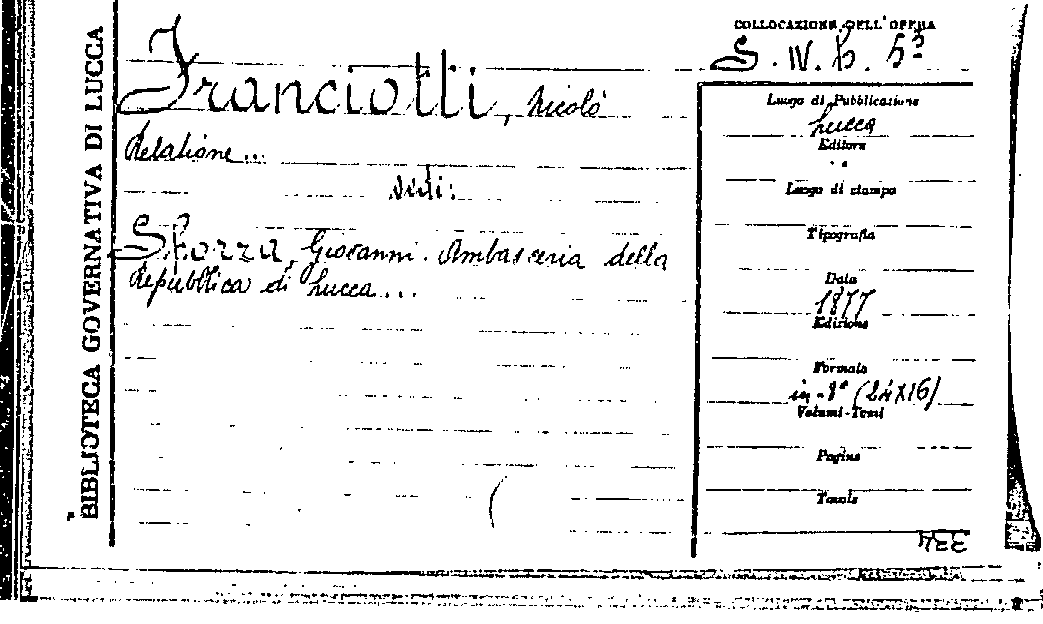 BIBLIOTECA GOVERNATIVA DI LUCCA
Franciotti, Nicolò
Relatione...
vedi:
Sforza, Giovanni. Ambasceria della
Repubblica di Lucca...
COLLOCAZIONE DELL'OPERA
S. IV. b. 5²
Luogo di Pubblicazione
Lucca
Editore
Luogo di stampa
Tipografia
Data
1877
Edizione
Formato
in-8° (24X16)
Volumi-Tomi
Pagine
Tavole